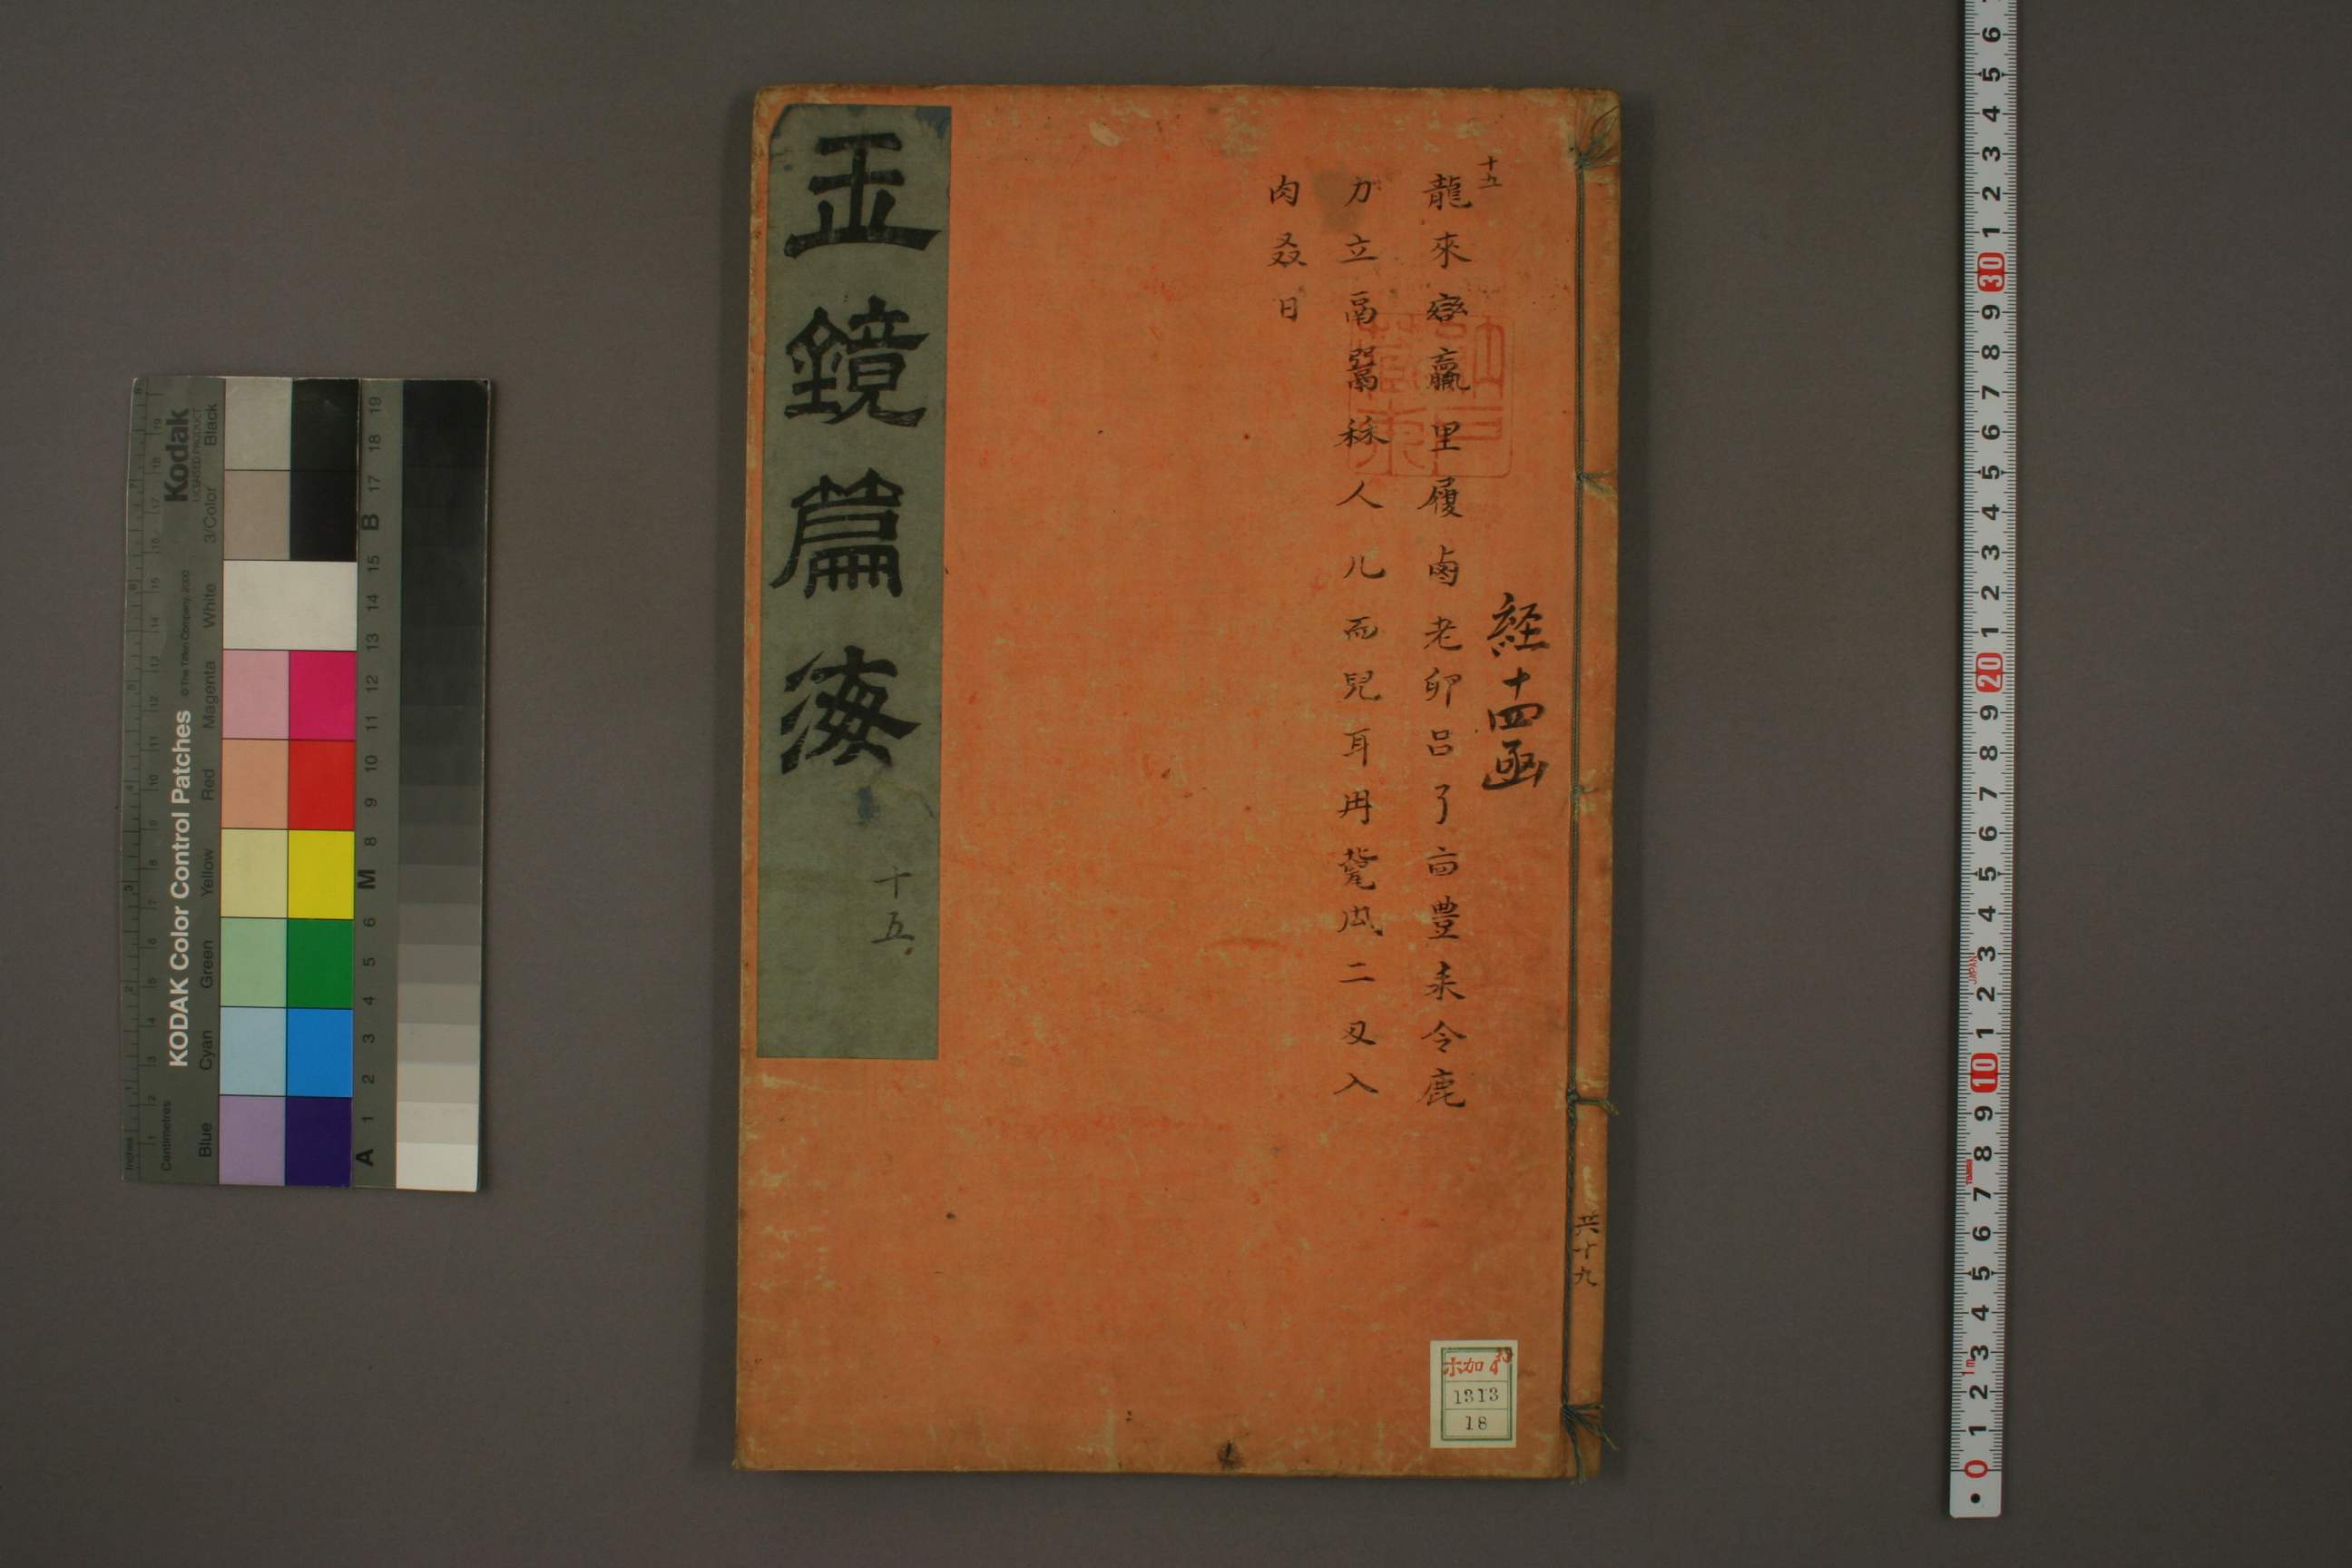 十五
経十四凾
龍來嗀蠃里履鹵老卵呂了㐭豊耒令鹿
力立鬲䰜秝人儿而兒耳冉㼱凨二㕛入
肉叒日
玉鏡篇海
十五
共十九
ホ加
1313
18
KODAK Color Control Patches
Kodak
LICENSED PRODUCT
© The Tiffen Company, 2000
Inches
Centimetres
Blue Cyan Green Yellow Red Magenta White 3/Color Black
A 1 2 3 4 5 6 M 8 9 10 11 12 13 14 15 B 17 18 19
JAPAN
1m